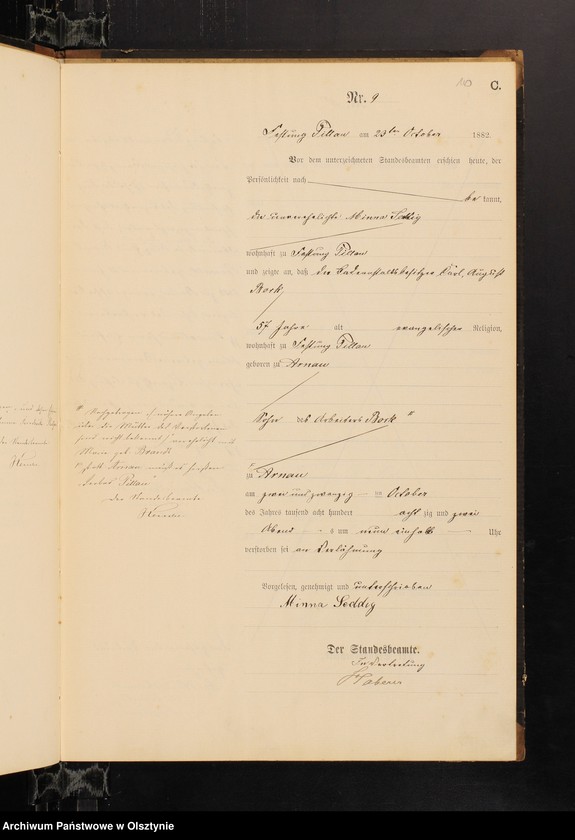 C.
Nr. 9
Festung Pillau am 23ten October 1882.
Vor dem unterzeichneten Standesbeamten erschien heute, der
Persönlichkeit nach
be kannt,
die unverehelichte Minna Seddig
wohnhaft zu Festung Pillau
und zeigte an, daß der Badeanstaltsbesitzer Carl, August
Bock,
57 Jahre alt evangelischer Religion,
wohnhaft zu Festung Pillau
geboren zu Arnau
Sohn des Arbeiters Bock "
zu Arnau
am zwei und zwanzig ten October
des Jahres tausend acht hundert acht zig und zwei
Abend s um neun einhalb Uhr
verstorben sei an Verlähmung
Vorgelesen, genehmigt und unterschrieben
Minna Seddig
Der Standesbeamte.
In Vertretung
" Nachgetragen nähere Angaben
über die Mutter des Verstorbenen
sind nicht bekannt verehelicht mit
Maria geb Brandt
statt Arnau muß es heißen
"Seebad Pillau"
Der Standesbeamte
Archiwum Państwowe w Olsztynie